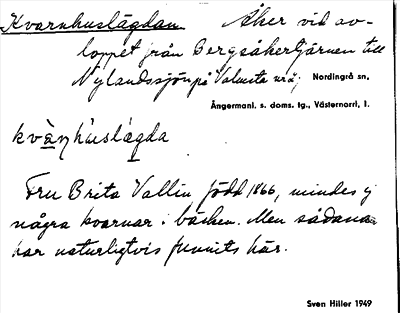 Kvarnhuslägdan Åker vid av-
loppet från Bergsåkertjärnen till
Nylandssjön på Valmsta vräj Nordingrå sn,
Ångermanl. s. doms. tg., Västernorrl. l.
kvä̀ṇhùslę̀gda
Fru Brita Vallin född 1866, mindes ej
några kvarnar i bäcken. Men sådana
har naturligtvis funnits här.
Sven Hiller 1949